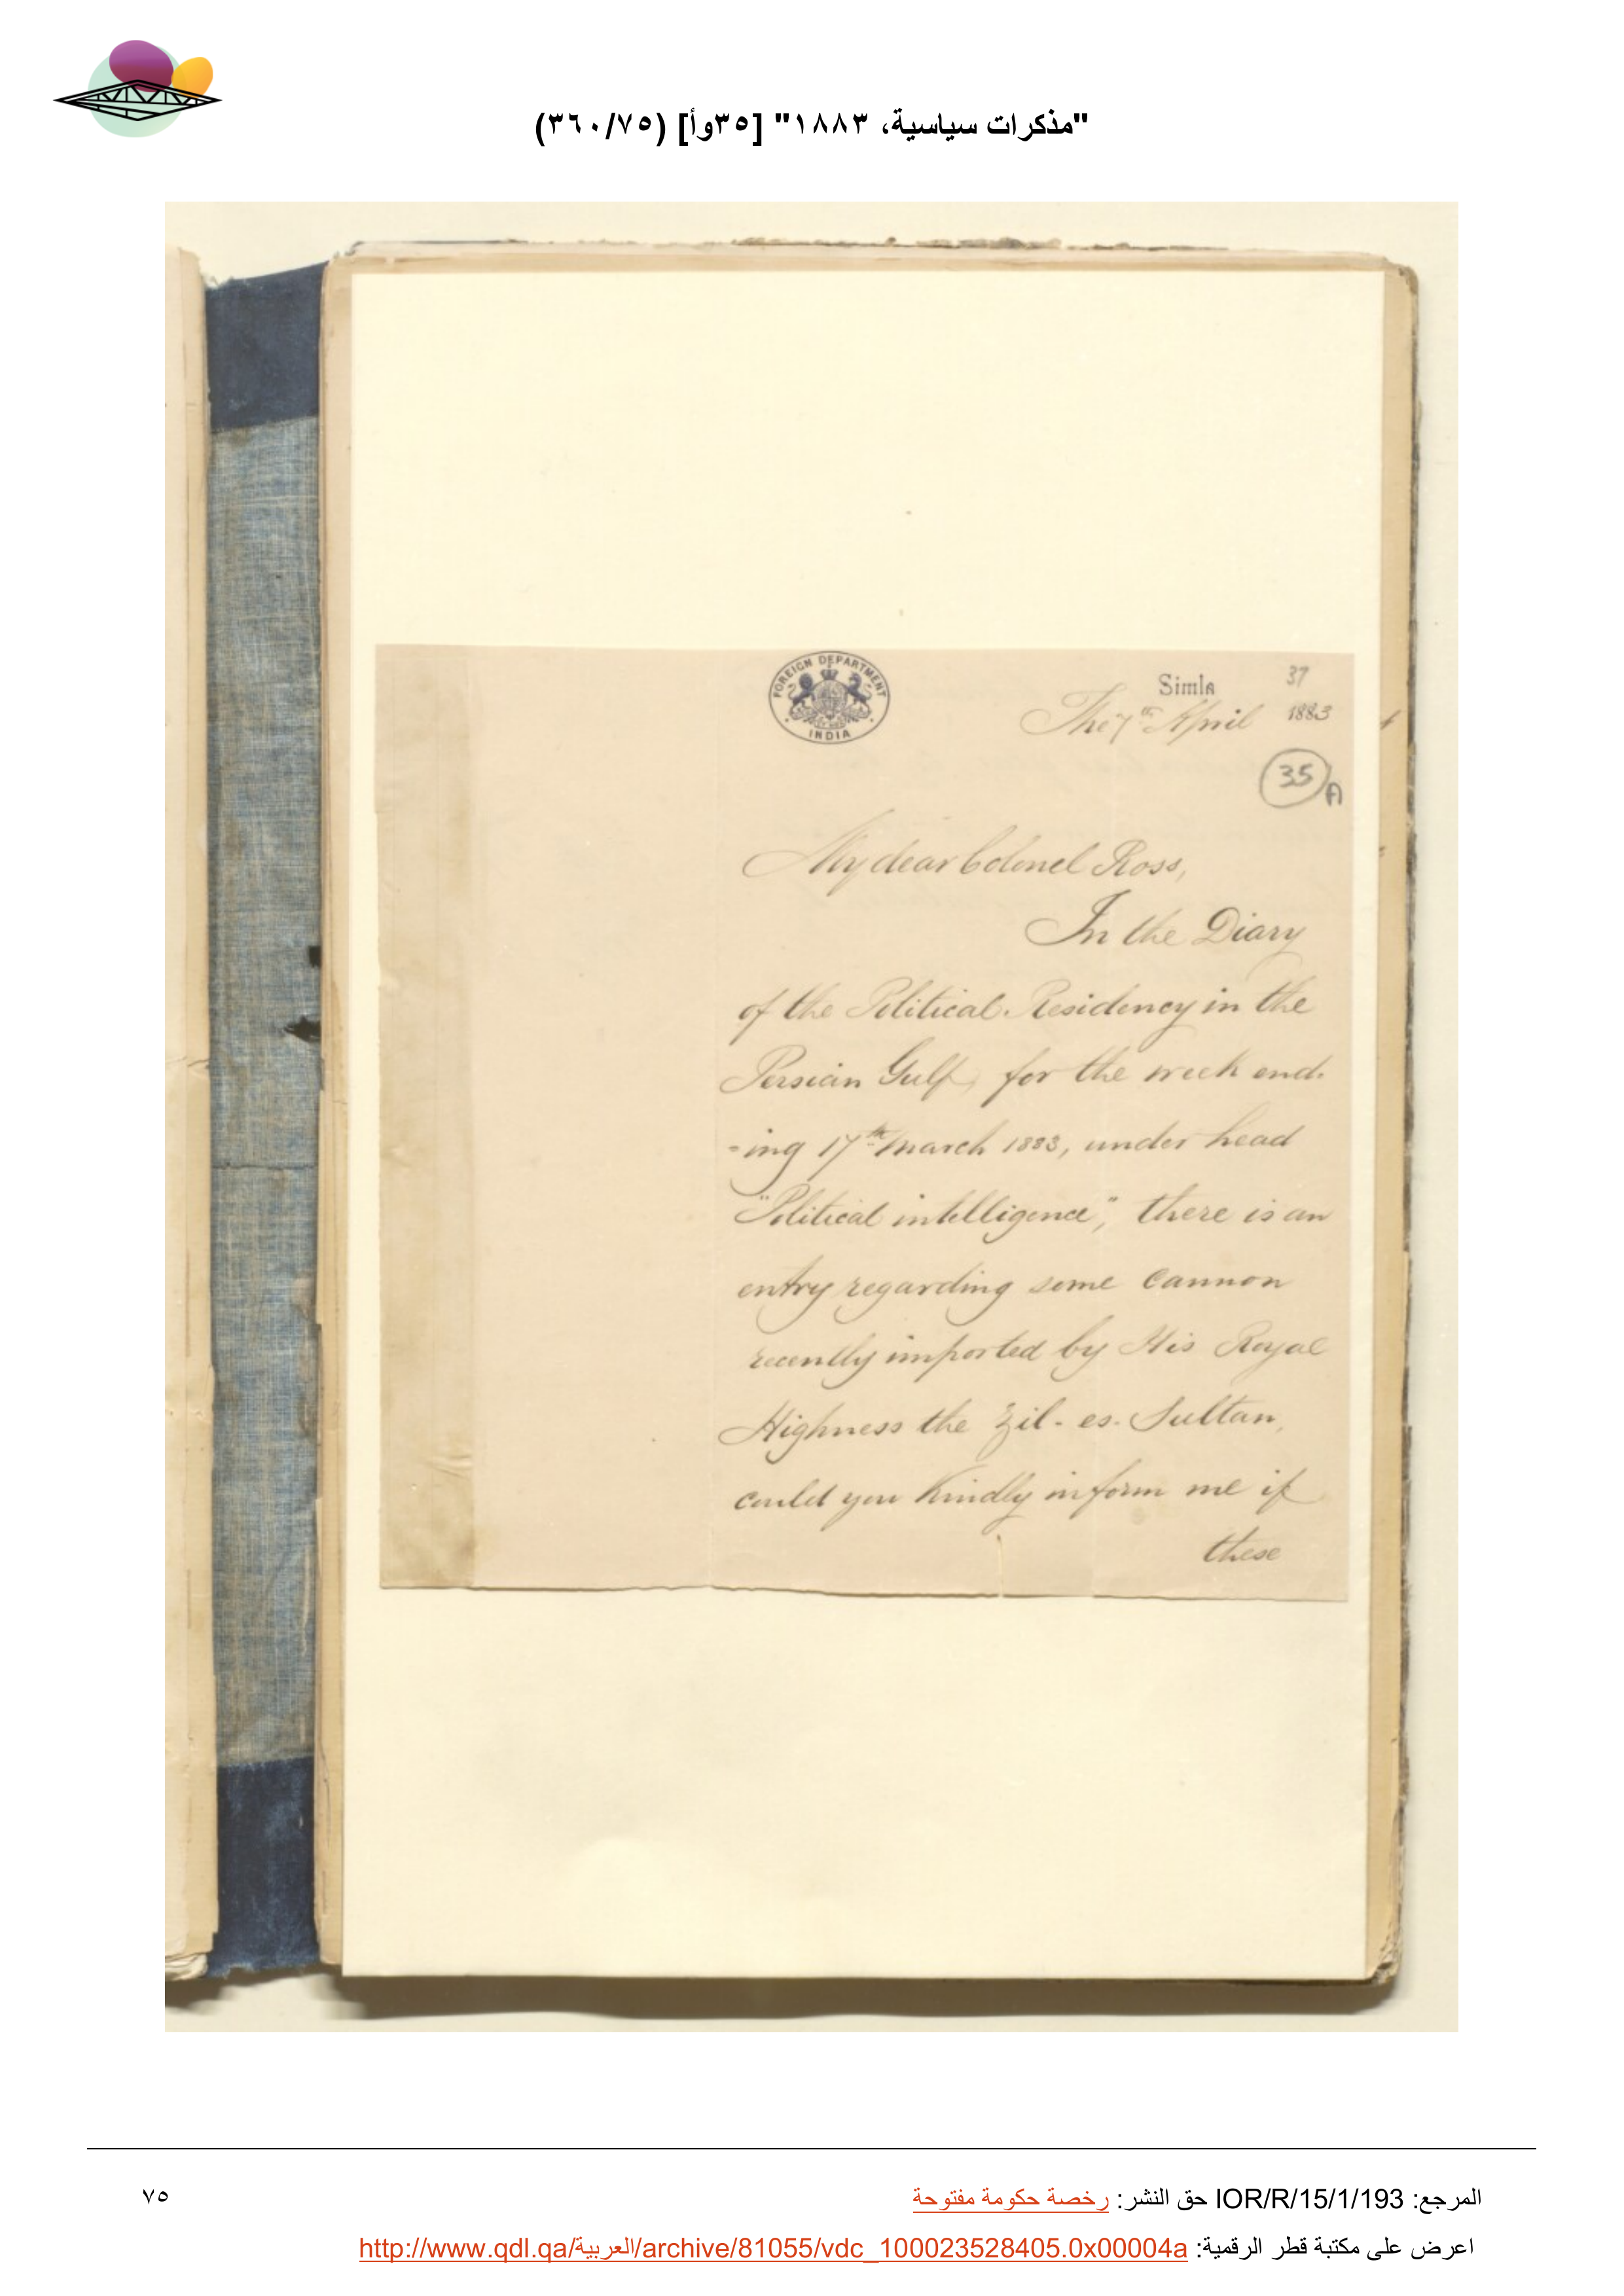 "مذكرات سياسية، ١٨٨٣" [٣٥وأ] (٣٦٠/٧٥)
FOREIGN DEPARTMENT
INDIA
Simla
37
The 7th April 1883
35 A
My dear Colonel Ross,
In the Diary
of the Political Residency in the
Persian Gulf, for the week end-
-ing 17th March 1883, under head
"Political intelligence", there is an
entry regarding some cannon
recently imported by His Royal
Highness the Zil-es-Sultan,
could you kindly inform me if
these
المرجع: IOR/R/15/1/193 حق النشر: رخصة حكومة مفتوحة
٧٥
اعرض على مكتبة قطر الرقمية: http://www.qdl.qa/العربية/archive/81055/vdc_100023528405.0x00004a